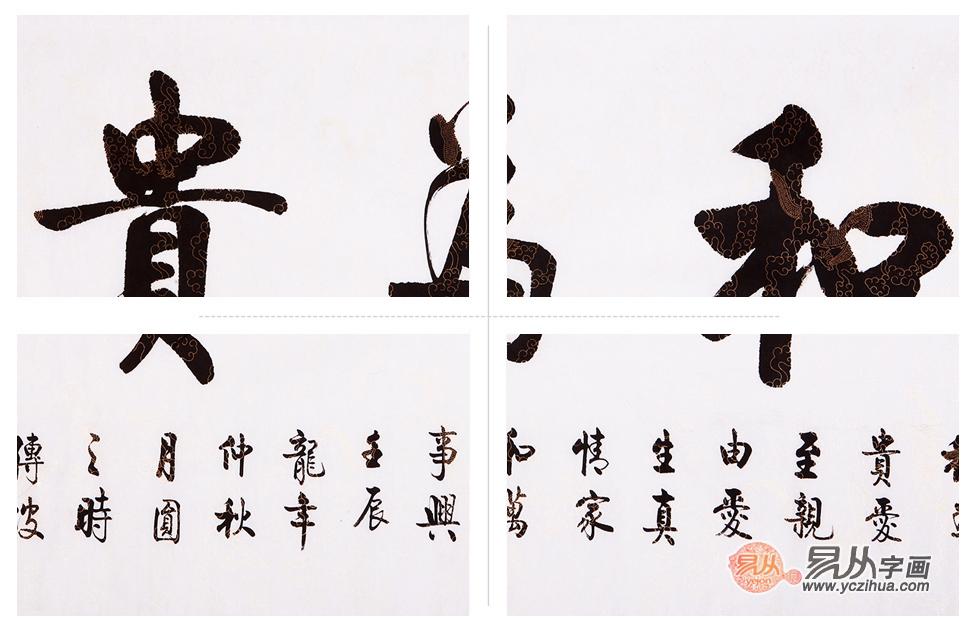 和
貴
貴愛
至親
由愛
生真
情家
和萬
事興
壬辰
龍年
仲秋
月圓
之時
傳波
易从
易从字画
www.yczihua.com